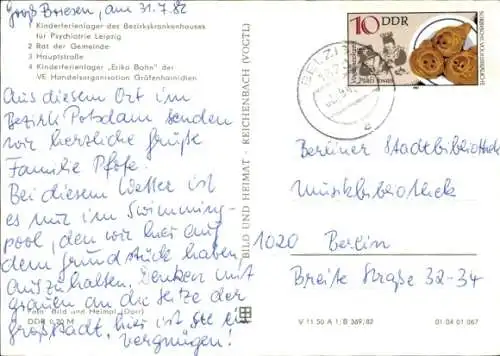 Groß Briesen, am 31.7.82
1 Kinderferienlager des Bezirkskrankenhauses
für Psychiatrie Leipzig
2 Rat der Gemeinde
3 Hauptstraße
4 Kinderferienlager „Erika Bahn" der
VE Handelsorganisation Gräfenhainichen
Aus diesem Ort im
Bezirk Potsdam senden
wir herzliche Grüße
Familie Pfote.
Bei diesem Wetter ist
es nur im Swimming-
pool, den wir hier auf
dem Grundstück haben,
auszuhalten. Denken mit
grauen an die Hitze der
Großstadt, hier ist sie ein
vergnügen!
Foto: Bild und Heimat (Oper)
DDR 0,20 M
BILD UND HEIMAT · REICHENBACH (VOGTL)
10 DDR
SORBISCHE VOLKSBRÄUCHE
BELZIG
Berliner Stadtbibliothek
Musikbibliothek
1020 Berlin
Breite Straße 32-34
V 11 50 A 1/B 369/82
01 04 01 067